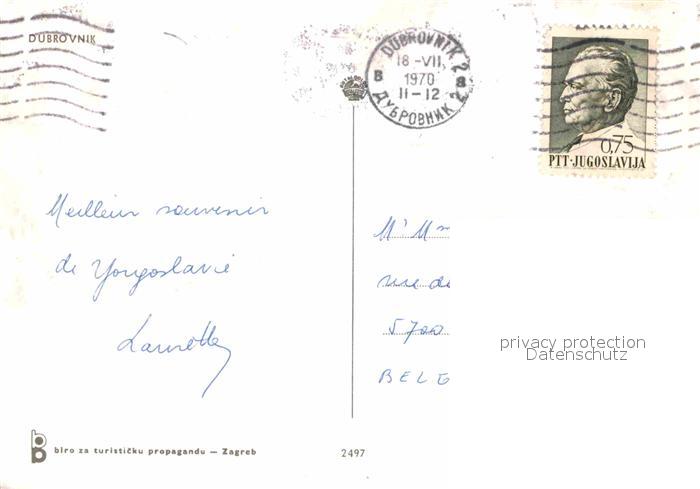 DUBROVNIK
DUBROVNIK 2
18-VII.
1970
11-12
B 8
ДУБРОВНИК 2
0,75
PTT·JUGOSLAVIJA
Meilleur souvenir
de Yougoslavie
Mr Mm
rue de
5700
BELG
privacy protection
Datenschutz
biro za turističku propagandu — Zagreb
2497